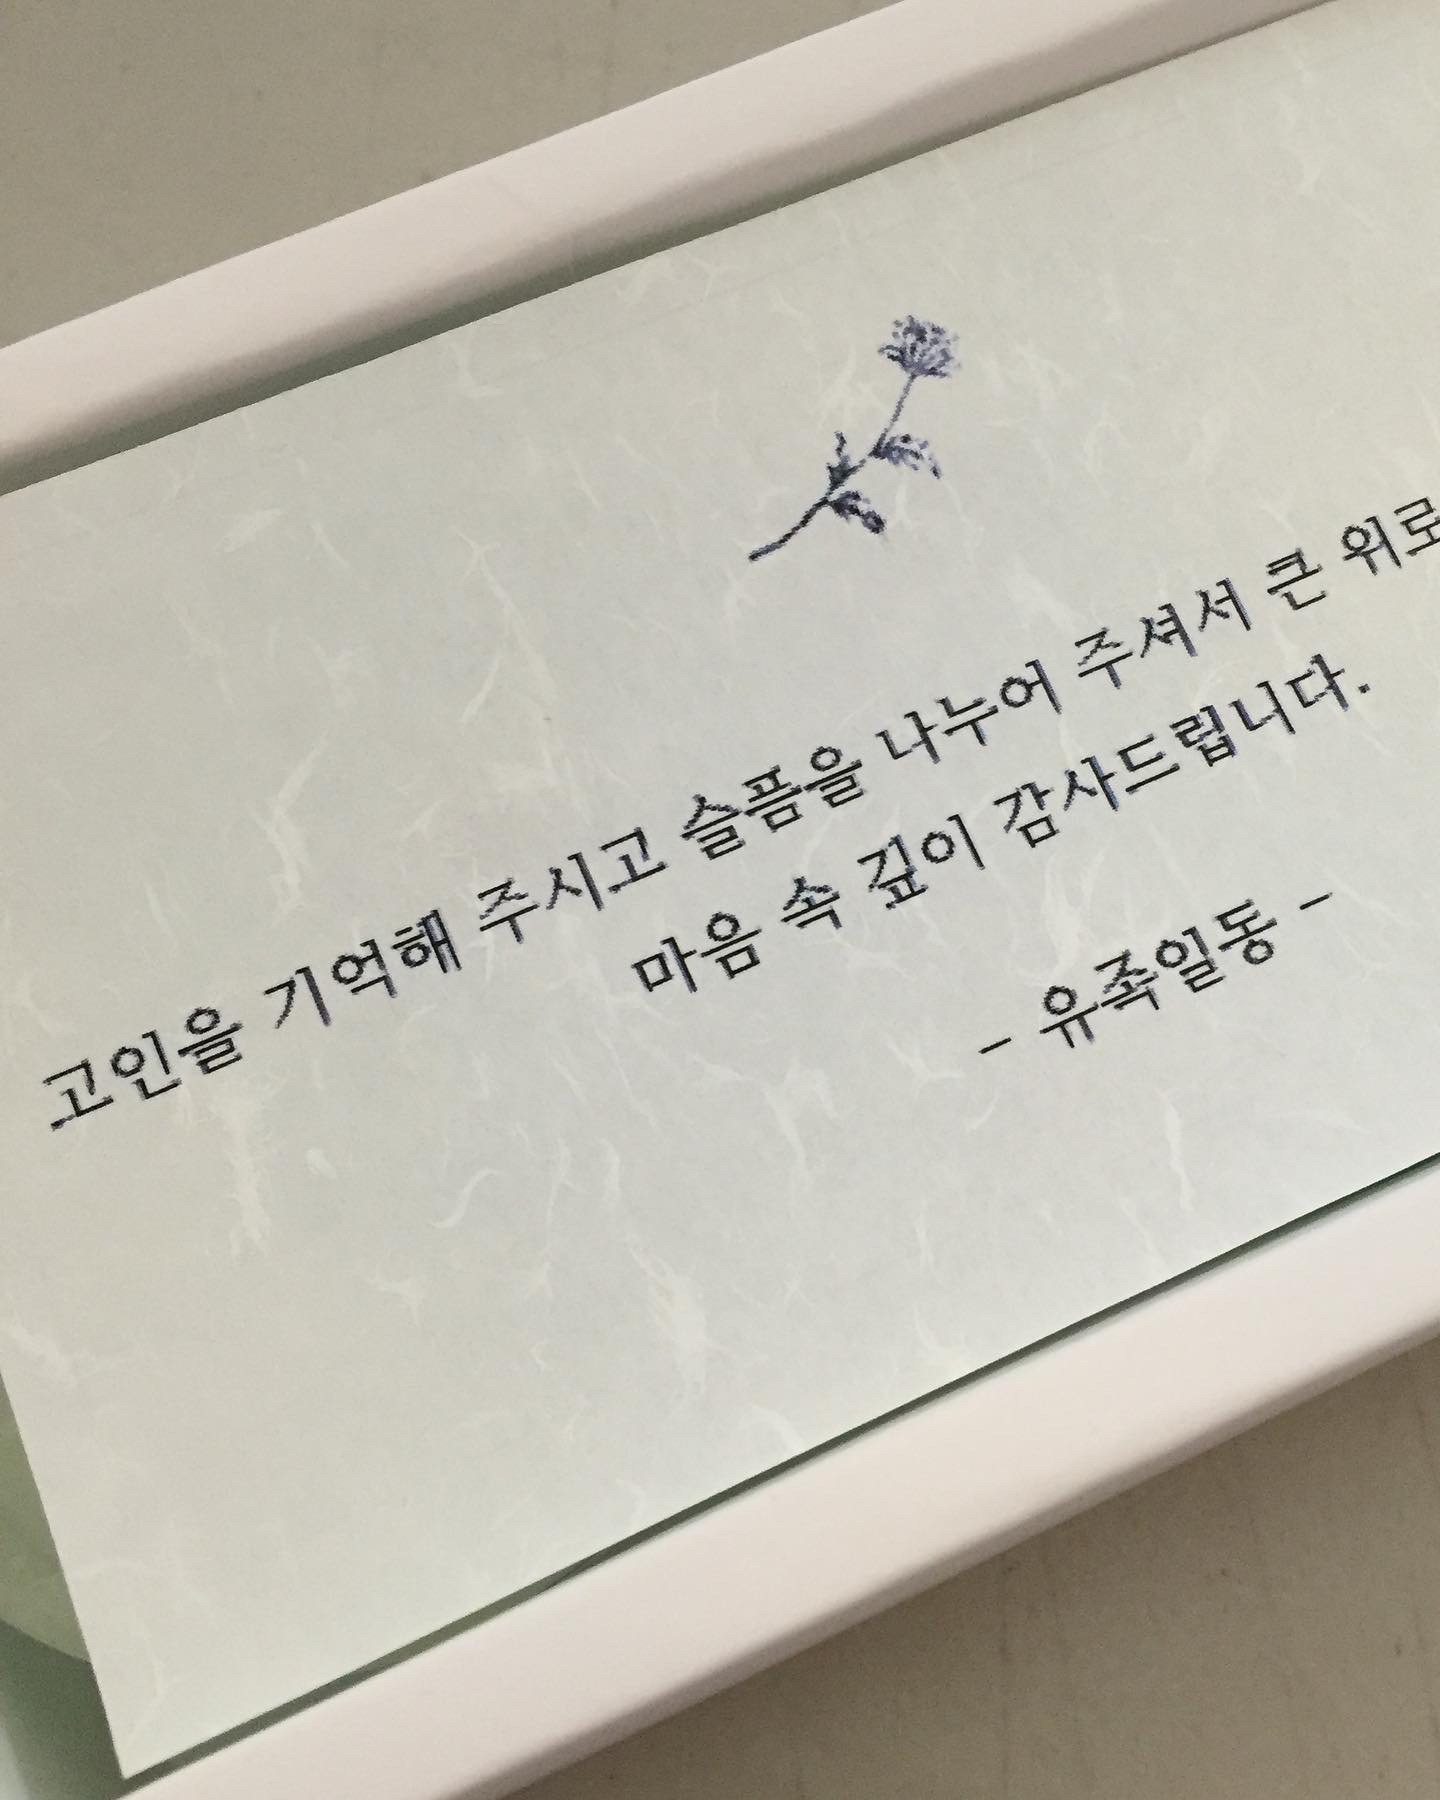 고인을 기억해 주시고 슬픔을 나누어 주셔서 큰 위로
마음 속 깊이 감사드립니다.
- 유족일동 -